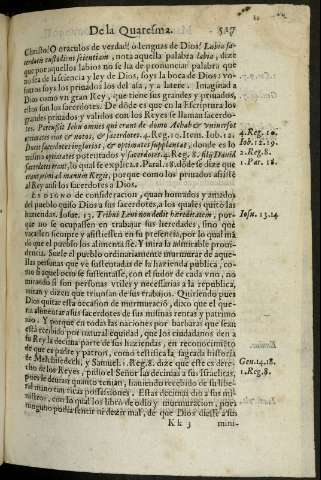 De la Quaresma. 527
Christo! O oraculos de verdad! o lenguas de Dios! Labia sa-
cerdotis custodient scientiam, nota aquella palabra labia, dize
que por aquellos labios no se ha de pronunciar palabra que
no sea de la sciencia y ley de Dios, soys la boca de Dios: vo-
sotros soys los priuados los del asa, y a latere. Imaginad a
Dios como vn gran Rey, que tiene sus grandes y priuados,
estos son los sacerdotes. De dõde es que en la Escriptura los
grandes priuados y validos con los Reyes se llaman sacerdo-
tes. Percussit Iehu omnes qui erant de domo Achab & vniuersos
optimates eius & notos, & sacerdotes. 4. Reg. 10. Item. Iob. 12.
Ducit sacerdotes inglorios, & optimates supplantat, donde es lo
mismo optimates potentados y sacerdotes. 4. Reg. 8. filij Dauid
sacerdotes erant, lo qual se explica 1. Paral. 18. dõde se dize que
erant primi ad manum Regis, porque como los priuados assistē
al Rey ansi los sacerdotes a Dios.
ES DIGNO de consideracion, quan honrados y amados
del pueblo quiso Dios a sus sacerdotes, a los quales quitó las
haziendas. Iosue. 13. Tribui Leui non dedit hæreditatem, por-
que no se ocupassen en trabajar sus heredades, sino que
vacassen siempre y assistiessen en su presencia, por lo qual mã
dò que el pueblo los alimentasse. Y mira la admirable proui-
dencia. Suele el pueblo ordinariamente murmurar de aque-
llas personas que vè sustentadas de su hazienda publica, co-
mo si aquel ocio se sustentasse, con el sudor de cada vno, no
mirando si son personas vtiles y necessarias a la republica,
miran y dizen que triunfan de sus trabajos. Queriendo pues
Dios quitar esta occasion de murmuracion, dixo que el que-
ria alimentar a sus sacerdotes de sus mismas rentas y patrimo
nio. Y porque en todas las naciones por barbaras que sean
està recibido por natural equidad, que los ciudadanos den a
su Rey la decima parte de sus haziendas, en reconocimiēto
de que es padre y patron, como testifica la sagrada historia
de Melchisedech, y Samuel. 1. Reg. 8. dize que este es dere-
cho de los Reyes, pidio el Señor las decimas a sus Israelitas,
pues le deuian quanto tenian, hauiendo recebido de su libe-
ral mano tan ricas possessiones. Estas decimas dio a sus mi-
nistros, con lo qual los librò de odio y murmuracion, pues
ninguno podia sentir ni dezir mal, de que Dios diesse a sus
Kk 3 mini-
4. Reg. 10.
Iob. 12. 19.
2. Reg. 8.
1. Par. 18.
Iosu. 13. 14
Gen. 14. 18.
1. Reg. 8.